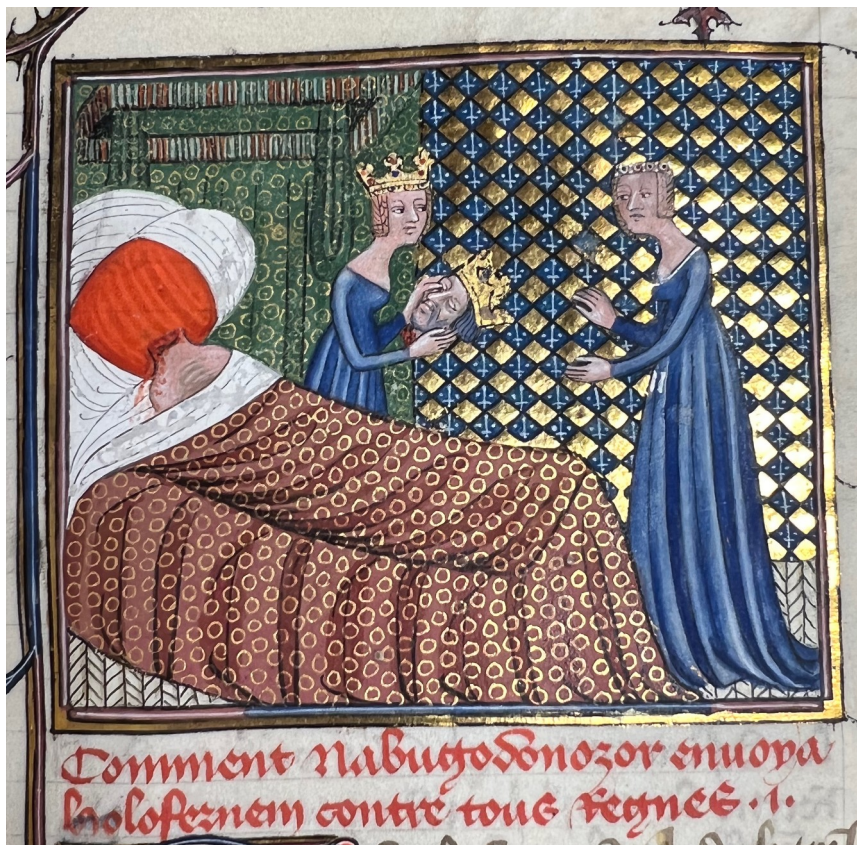 Comment nabugodonozor enuoya
holofernem contre tous regnes . i .